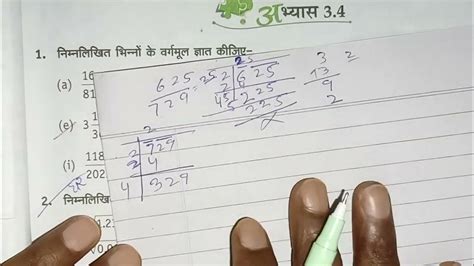 अभ्यास 3.4
1. निम्नलिखित भिन्नों के वर्गमूल ज्ञात कीजिए–
(a) 16
81
(e) 3
(i) 118
202
2. निम्नलिखि
625
729
= 25
25
2 625
2 4
45 225
225
2
2 729
2 4
4 329
3 2
13
9
2